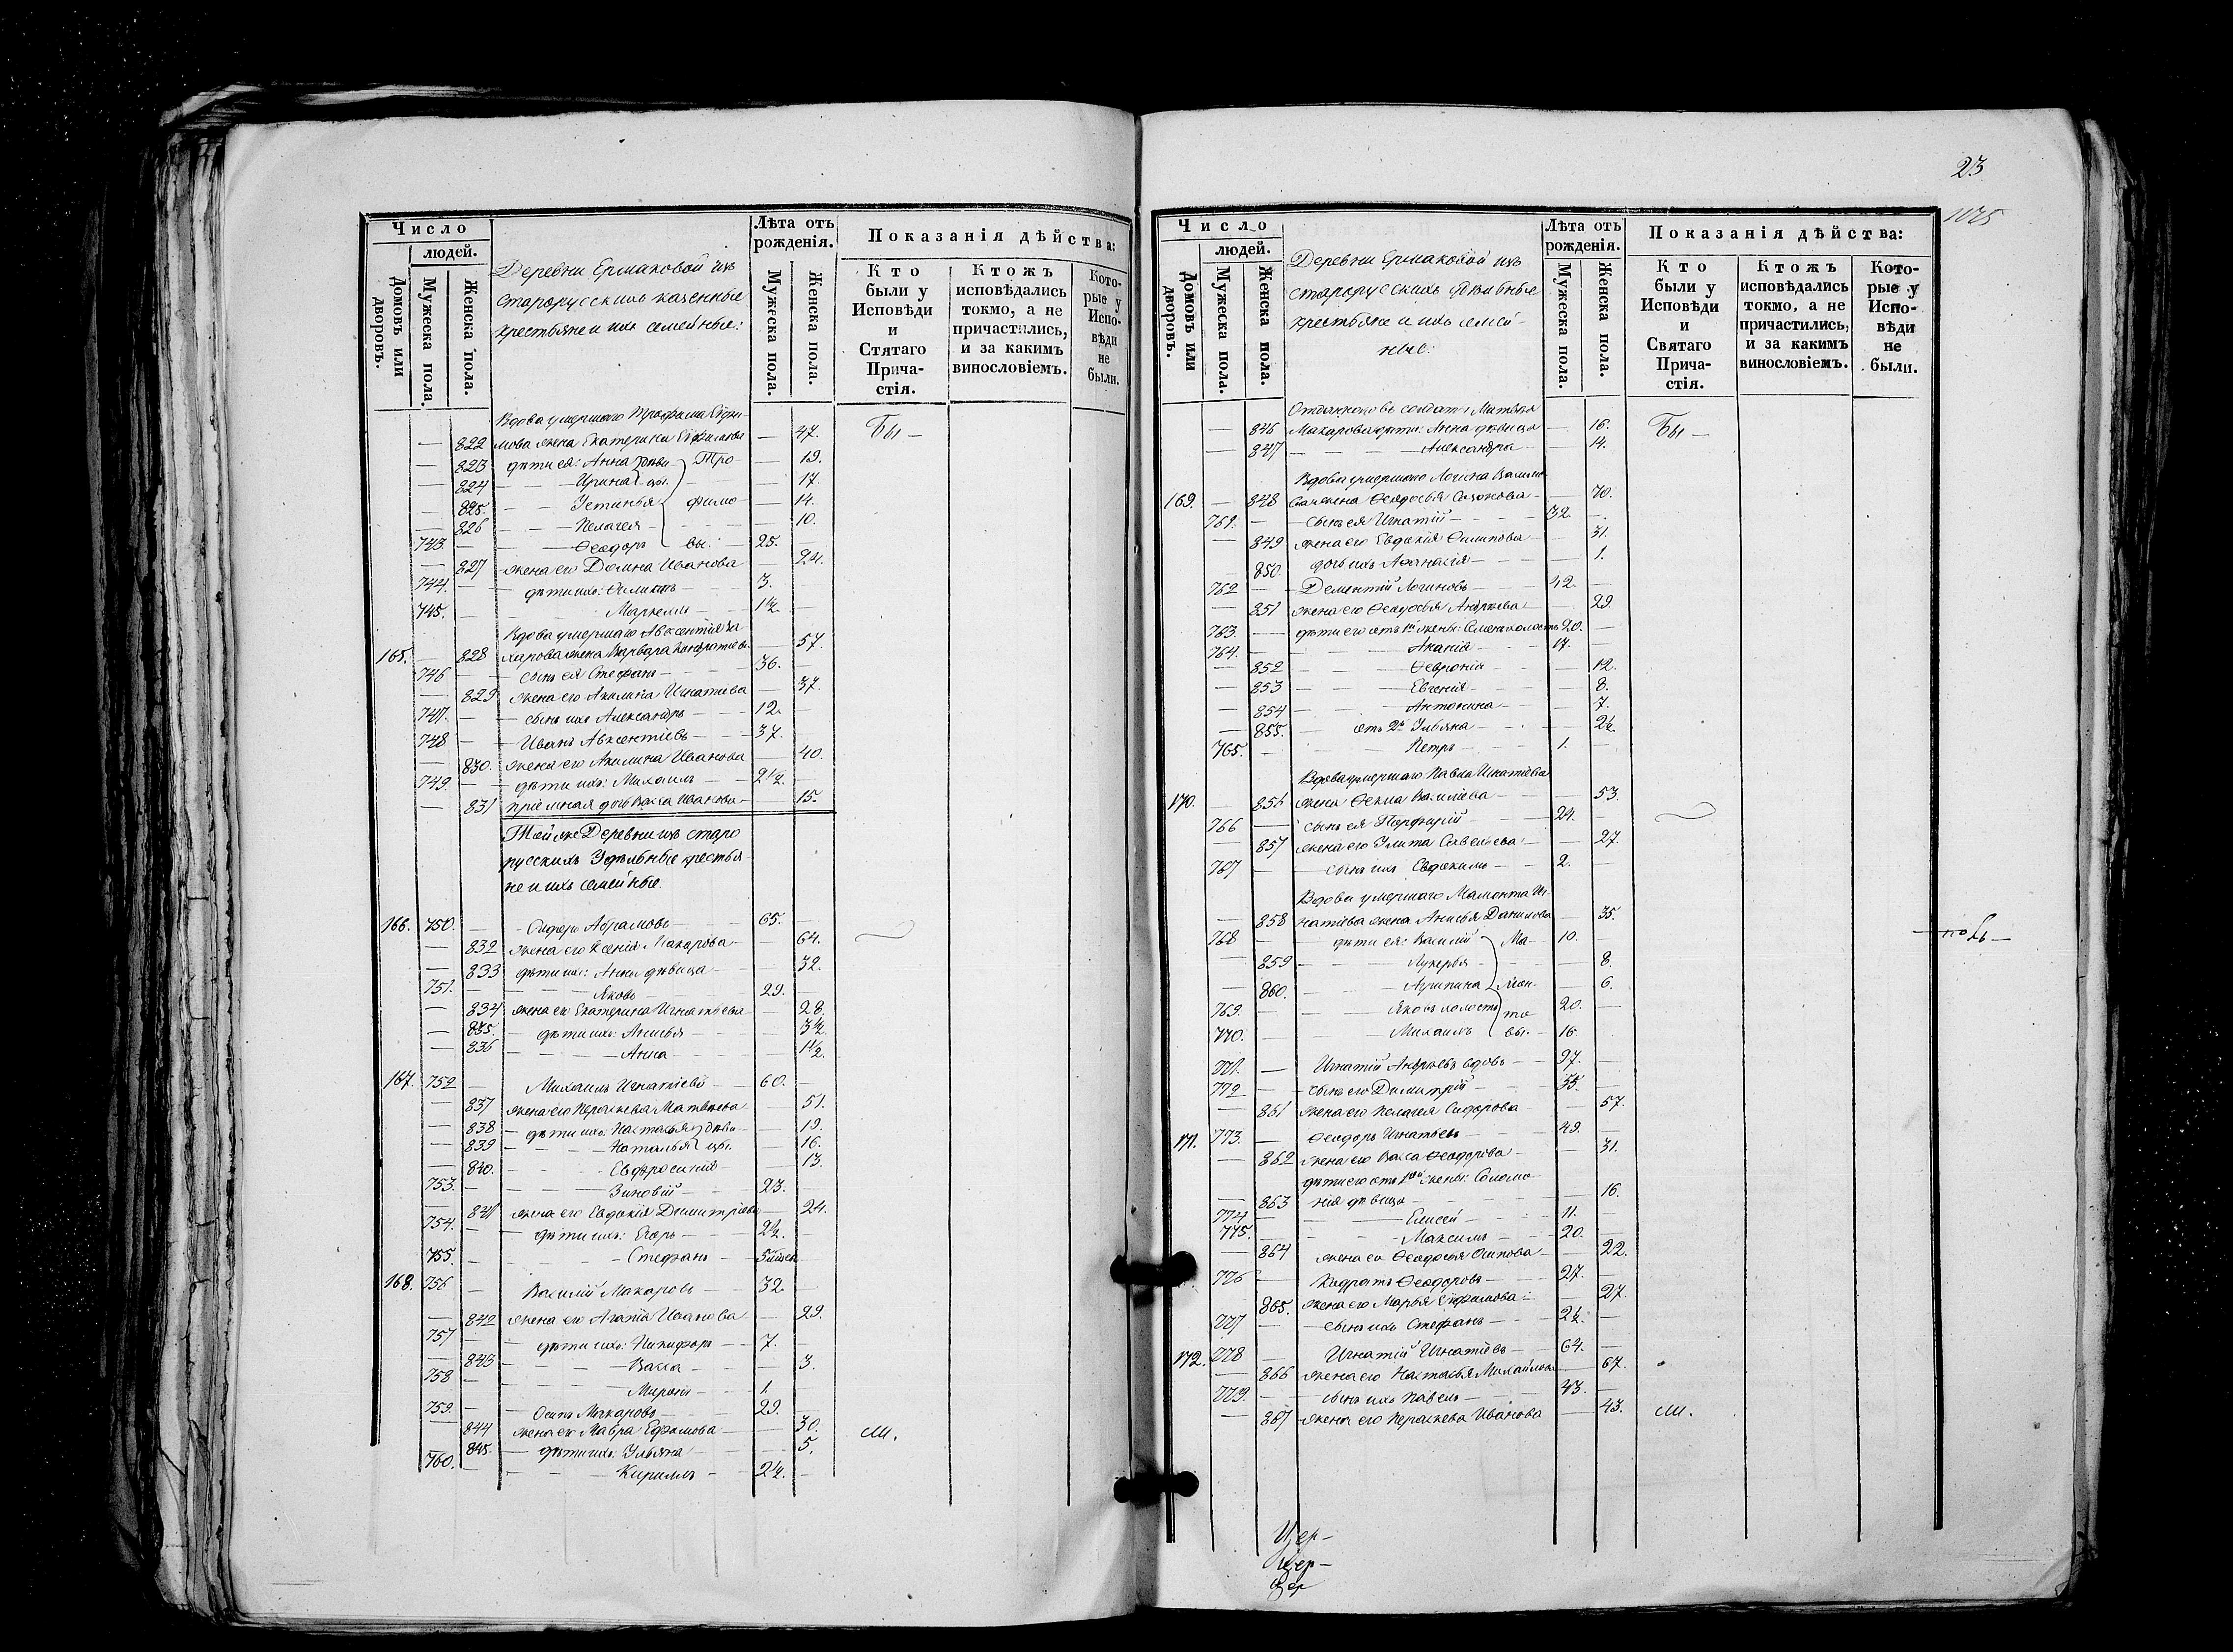 Число
людей.
Домовъ или дворовъ.
Мужеска пола.
Женска пола.
Деревни Ермаковой изъ
старорусскихъ казенные
крестьяне и ихъ семейные:
Лѣта отъ рожденія.
Мужеска пола.
Женска пола.
Показанія дѣйства:
Кто были у Исповѣди и Стятаго Прича-стія.
Ктожъ исповѣдались токмо, а не причастились, и за какимъ винословіемъ.
Кото-рые у Испо-вѣди не были.
Вдова умершаго Трофима Ефи-
— 822 мова жена Екатерина Ефимова — 47. Бы —
— 823 дѣти ея: Анна дѣви- Тро — 19.
— 824 — — Ирина цы. — 17.
— 825. — — Устинья фимо — 14.
— 826 — — Пелагея — — 10.
743. — — Ѳеодоръ вы. 25. —
— 827 жена его Домна Иванова — 24.
744. — дѣти ихъ: 3. —
745. — 1½ —
Вдова умершаго Авксентія За
165. — 828 харова жена Варвара Кондратіева — 57.
746 — сынъ ея Стефанъ — 36. —
— 829 жена его Акилина Игнатіева — 37.
747. — сынъ ихъ Александръ — 12. —
748 — Иванъ Авксентіевъ — 37. —
— 830. жена его Акилина Иванова — 40.
749. — дѣти ихъ: Михаилъ — 2½. —
— 831 пріемная дочь Васса Иванова — 15.
Той же Деревни изъ старо
русскихъ Удѣльные крестья-
не и ихъ семейные.
166. 750. — Сидоръ Абрамовъ — 65. —
— 832 жена его Ксенія Макарова — 64.
— 833 дѣти ихъ: Анна дѣвица — 32.
751. — — Яковъ — 29. —
— 834 жена его Екатерина Игнатьева — 28.
— 835. дѣти ихъ: Анисья — 3½
— 836 — — Анна — 1½.
167. 752 — Михаилъ Игнатіевъ — 60. —
— 837 жена его Параскева Матвѣева — 51.
— 838 — дѣти ихъ: Настасья дѣви- — 19.
— 839 — — Наталья цы. — 16.
— 840. — — Евфросинія — 13.
753. — — Зиновій — 23. —
— 841 жена его Евдокія Димитріева — 24.
754. — дѣти ихъ: Егоръ — 2½. —
755. — — Стефанъ — 5 —
168. 756 — Василій Макаровъ — 32. —
— 842 жена его Агапія Иванова — 29.
757 — дѣти ихъ: Никифоръ — 7. —
— 843 — — Васса — 3.
758 — — Миронъ — 1. —
759. — Осипъ Макаровъ — 29. —
— 844 жена его Мавра Ефимова — 30. ли.
— 845. — дѣти ихъ: Ульяна — 5.
760. — — Кириллъ — 2½. —
23
1025
Число
людей.
Домовъ или дворовъ.
Мужеска пола.
Женска пола.
Деревни Ермаковой изъ
старорусскихъ удѣльные
крестьяне и ихъ семей-
ные:
Лѣта отъ рожденія.
Мужеска пола.
Женска пола.
Показанія дѣйства:
Кто были у Исповѣди и Святаго Прича-стія.
Ктожъ исповѣдались токмо, а не причастились, и за какимъ винословіемъ.
Кото-рые у Испо-вѣди не были.
въ солдаты Матвѣя
— 846 Макарова дѣти: Анна дѣвица — 16. Бы —
— 847 — — Александра — 14.
Вдова умершаго Логина Василье-
169. — 848 ва жена Ѳеодосья — 70.
761. — сынъ ея Игнатій — 32. —
— 849 жена его Евдокія Филипова — 31.
— 850. дочь ихъ Аѳанасія — 1.
762 — Дементій Логиновъ — 42. —
— 851 жена его Ѳеодосья Андреева — 29.
763. — дѣти его отъ 1й жены: Семенъ холостъ 20. —
764. — — 17. —
— 852 — — Ѳевронія — 12.
— 853 — — Евгенія — 8.
— 854 — — Антонина — 7.
— 855. — отъ 2й Ульяна — 2½.
765. — — Петръ — 1. —
Вдова умершаго Павла Игнатіева
170. — 856 жена Ѳекла Василіева — 53.
766 — сынъ ея Порфирій — 24. —
— 857 жена его Улита Савельева — 27.
767 — сынъ ихъ Евдокимъ — 2. —
Вдова умершаго Мамонта Иг-
— 858 натіева жена Анисья Данилова — 35.
768 — дѣти ея: Василій Ма- 10. —
— 859 — — Лукерья — 8.
— 860. — — Агрипина мон- — 6.
769. — — Яковъ холостъ то 20. —
770. — — Михаилъ вы. — 16.
771. — Игнатій Андреевъ вдовъ — 97. —
772 — сынъ его Димитрій — 55. —
— 861 жена его Пелагея Сидорова — 57.
171. 773. — Ѳеодоръ Игнатьевъ — 49. —
— 862 жена его Васса Ѳеодорова — 31.
дѣти его отъ 1вой жены: Соломо-
— 863 нія дѣвица — 16.
774 — — Елисей — 11. —
775. — — Максимъ — 20. —
— 864 жена его Ѳеодосья Осипова — 22.
776 — Кодратъ Ѳеодоровъ — 27. —
— 865. жена его Марья Ефимова — 27.
777 — сынъ ихъ Стефанъ — 2½. —
172. 778 — Игнатій Игнатіевъ — 64. —
— 866 жена его Настасья Михайлова — 67.
779. — сынъ ихъ Павелъ — 43. —
— 867 жена его Параскева Иванова — 43. ли.
Цер-
Цер-
Цер